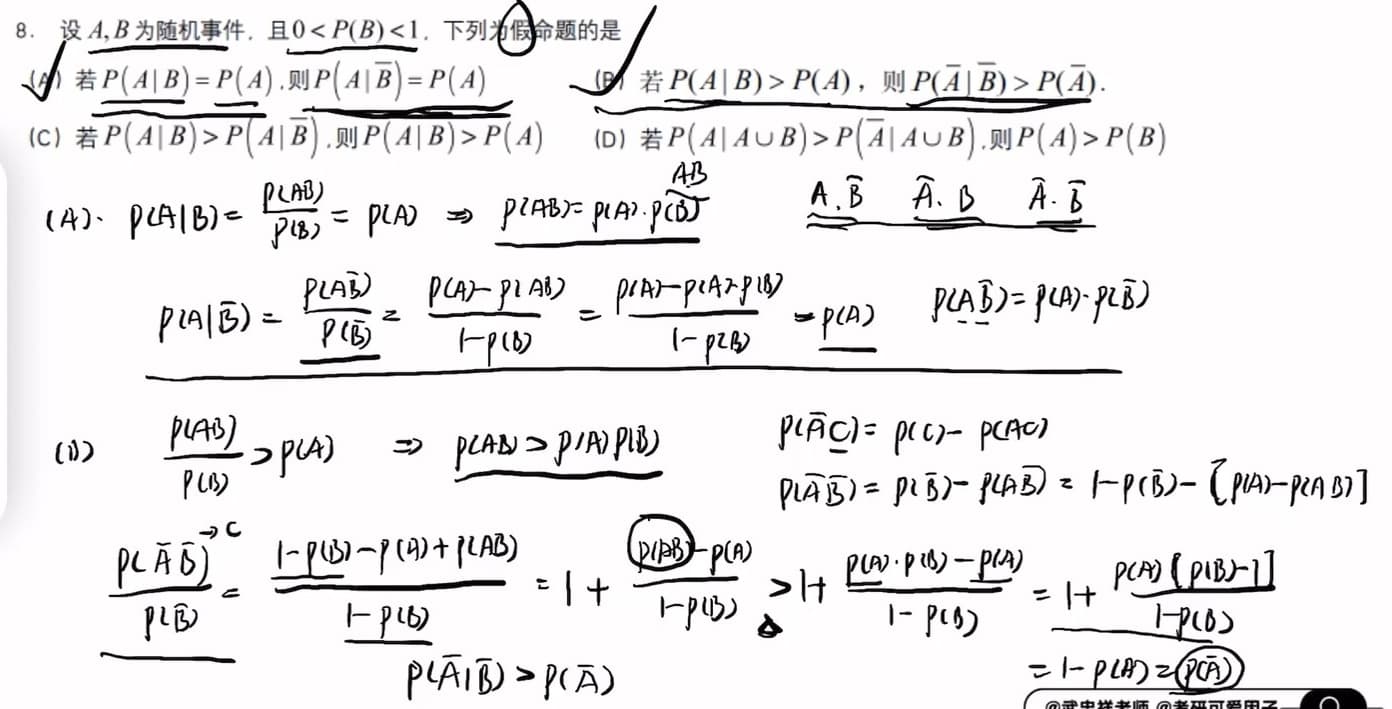 8. 设 A,B 为随机事件，且 0<P(B)<1，下列为假命题的是
(A) 若 P(A|B)=P(A),则 P(A|B̅)=P(A) (B) 若 P(A|B)>P(A)，则 P(A̅|B̅)>P(A̅).
(C) 若 P(A|B)>P(A|B̅),则 P(A|B)>P(A) (D) 若 P(A|A∪B)>P(A̅|A∪B),则 P(A)>P(B)
AB
(A). P(A|B)= P(AB)/P(B) = P(A) ⇒ P(AB)=P(A)·P(B) A.B̅ A̅.B A̅.B̅
P(A|B̅) = P(AB̅)/P(B̅) = (P(A)-P(AB))/(1-P(B)) = (P(A)-P(A)·P(B))/(1-P(B)) = P(A) P(AB̅)=P(A)·P(B̅)
(B) P(AB)/P(B) > P(A) ⇒ P(AB)>P(A)P(B) P(A̅C)= P(C)- P(AC)
P(A̅B̅)= P(B̅)- P(AB̅) = 1-P(B̅)-[P(A)-P(AB)]
→C
P(A̅B̅)/P(B̅) = (1-P(B)-P(A)+P(AB))/(1-P(B)) = 1+ (P(AB)-P(A))/(1-P(B)) > 1+ (P(A)·P(B)-P(A))/(1-P(B)) = 1+ P(A)[P(B)-1]/(1-P(B))
P(A̅|B̅)>P(A̅) = 1-P(A)=P(A̅)
@武忠祥老师 @考研可爱因子